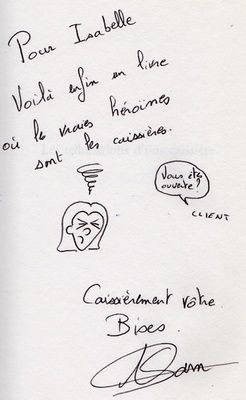 Pour Isabelle
Voilà enfin un livre
où les vraies héroïnes
sont les caissières.
Vous êtes
ouverte?
CLIENT
Caissièrement vôtre
Bises.